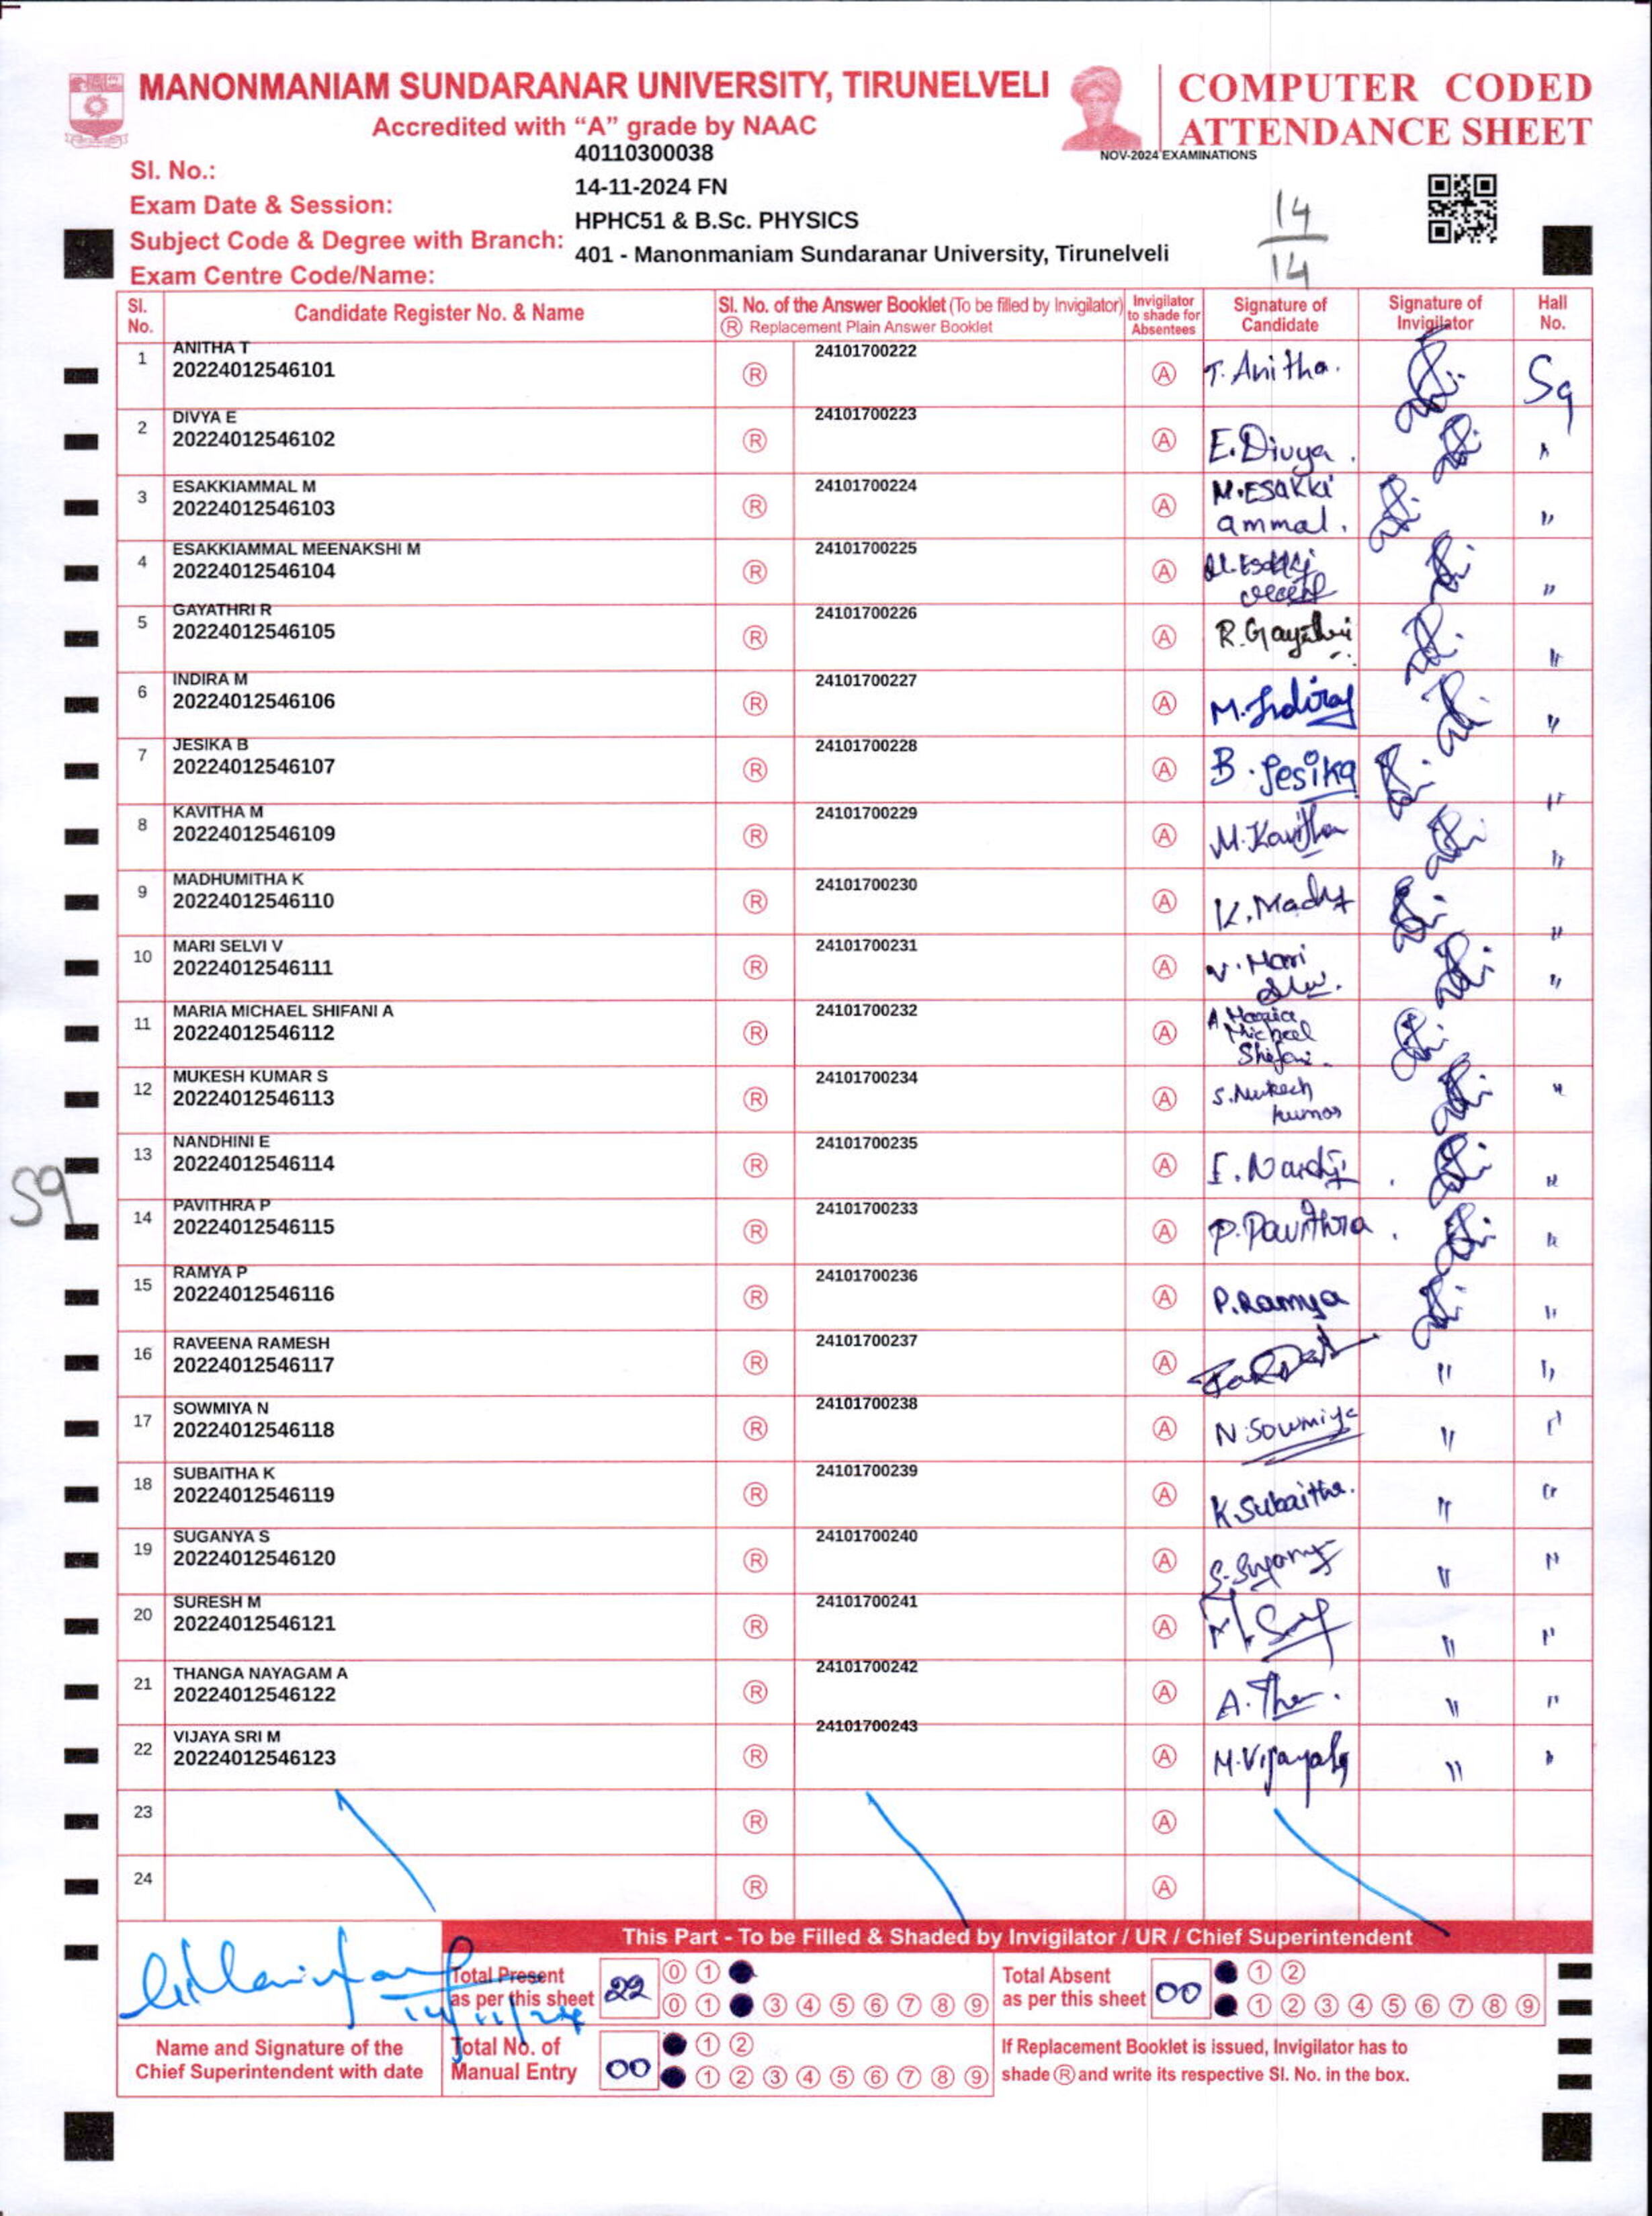 MANONMANIAM SUNDARANAR UNIVERSITY, TIRUNELVELI
Accredited with “A” grade by NAAC
COMPUTER CODED
ATTENDANCE SHEET
NOV-2024 EXAMINATIONS
Sl. No.: 40110300038
Exam Date & Session: 14-11-2024 FN
Subject Code & Degree with Branch: HPHC51 & B.Sc. PHYSICS
Exam Centre Code/Name: 401 - Manonmaniam Sundaranar University, Tirunelveli
14
14
Sl. No. Candidate Register No. & Name Sl. No. of the Answer Booklet (To be filled by Invigilator) Ⓡ Replacement Plain Answer Booklet Invigilator to shade for Absentees Signature of Candidate Signature of Invigilator Hall No.
1 ANITHA T 24101700222
20224012546101 Ⓡ Ⓐ T. Anitha. S9
2 DIVYA E 24101700223
20224012546102 Ⓡ Ⓐ E. Divya. "
3 ESAKKIAMMAL M 24101700224
20224012546103 Ⓡ Ⓐ M. ESAKKI ammal. "
4 ESAKKIAMMAL MEENAKSHI M 24101700225
20224012546104 Ⓡ Ⓐ "
5 GAYATHRI R 24101700226
20224012546105 Ⓡ Ⓐ R. Gayathri "
6 INDIRA M 24101700227
20224012546106 Ⓡ Ⓐ M. Indira "
7 JESIKA B 24101700228
20224012546107 Ⓡ Ⓐ B. Jesika "
8 KAVITHA M 24101700229
20224012546109 Ⓡ Ⓐ M. Kavitha "
9 MADHUMITHA K 24101700230
20224012546110 Ⓡ Ⓐ K. Madhu "
10 MARI SELVI V 24101700231
20224012546111 Ⓡ Ⓐ V. Mari "
11 MARIA MICHAEL SHIFANI A 24101700232
20224012546112 Ⓡ Ⓐ A. Maria Micheel Shifani.
12 MUKESH KUMAR S 24101700234
20224012546113 Ⓡ Ⓐ S. Mukesh kumar "
13 NANDHINI E 24101700235
20224012546114 Ⓡ Ⓐ E. Nandi "
S9
14 PAVITHRA P 24101700233
20224012546115 Ⓡ Ⓐ P. Pavithra. "
15 RAMYA P 24101700236
20224012546116 Ⓡ Ⓐ P. Ramya "
16 RAVEENA RAMESH 24101700237
20224012546117 Ⓡ Ⓐ " "
17 SOWMIYA N 24101700238
20224012546118 Ⓡ Ⓐ N. Sowmiya " "
18 SUBAITHA K 24101700239
20224012546119 Ⓡ Ⓐ K. Subaitha. " "
19 SUGANYA S 24101700240
20224012546120 Ⓡ Ⓐ " "
20 SURESH M 24101700241
20224012546121 Ⓡ Ⓐ " "
21 THANGA NAYAGAM A 24101700242
20224012546122 Ⓡ Ⓐ A. Than. " "
22 VIJAYA SRI M 24101700243
20224012546123 Ⓡ Ⓐ " "
23 Ⓡ Ⓐ
24 Ⓡ Ⓐ
This Part - To be Filled & Shaded by Invigilator / UR / Chief Superintendent
14/11/24
Name and Signature of the
Chief Superintendent with date
Total Present
as per this sheet 22
0 1
0 1 3 4 5 6 7 8 9
Total Absent
as per this sheet 00
1 2
1 2 3 4 5 6 7 8 9
Total No. of
Manual Entry 00
1 2
1 2 3 4 5 6 7 8 9
If Replacement Booklet is issued, Invigilator has to
shade Ⓡ and write its respective Sl. No. in the box.